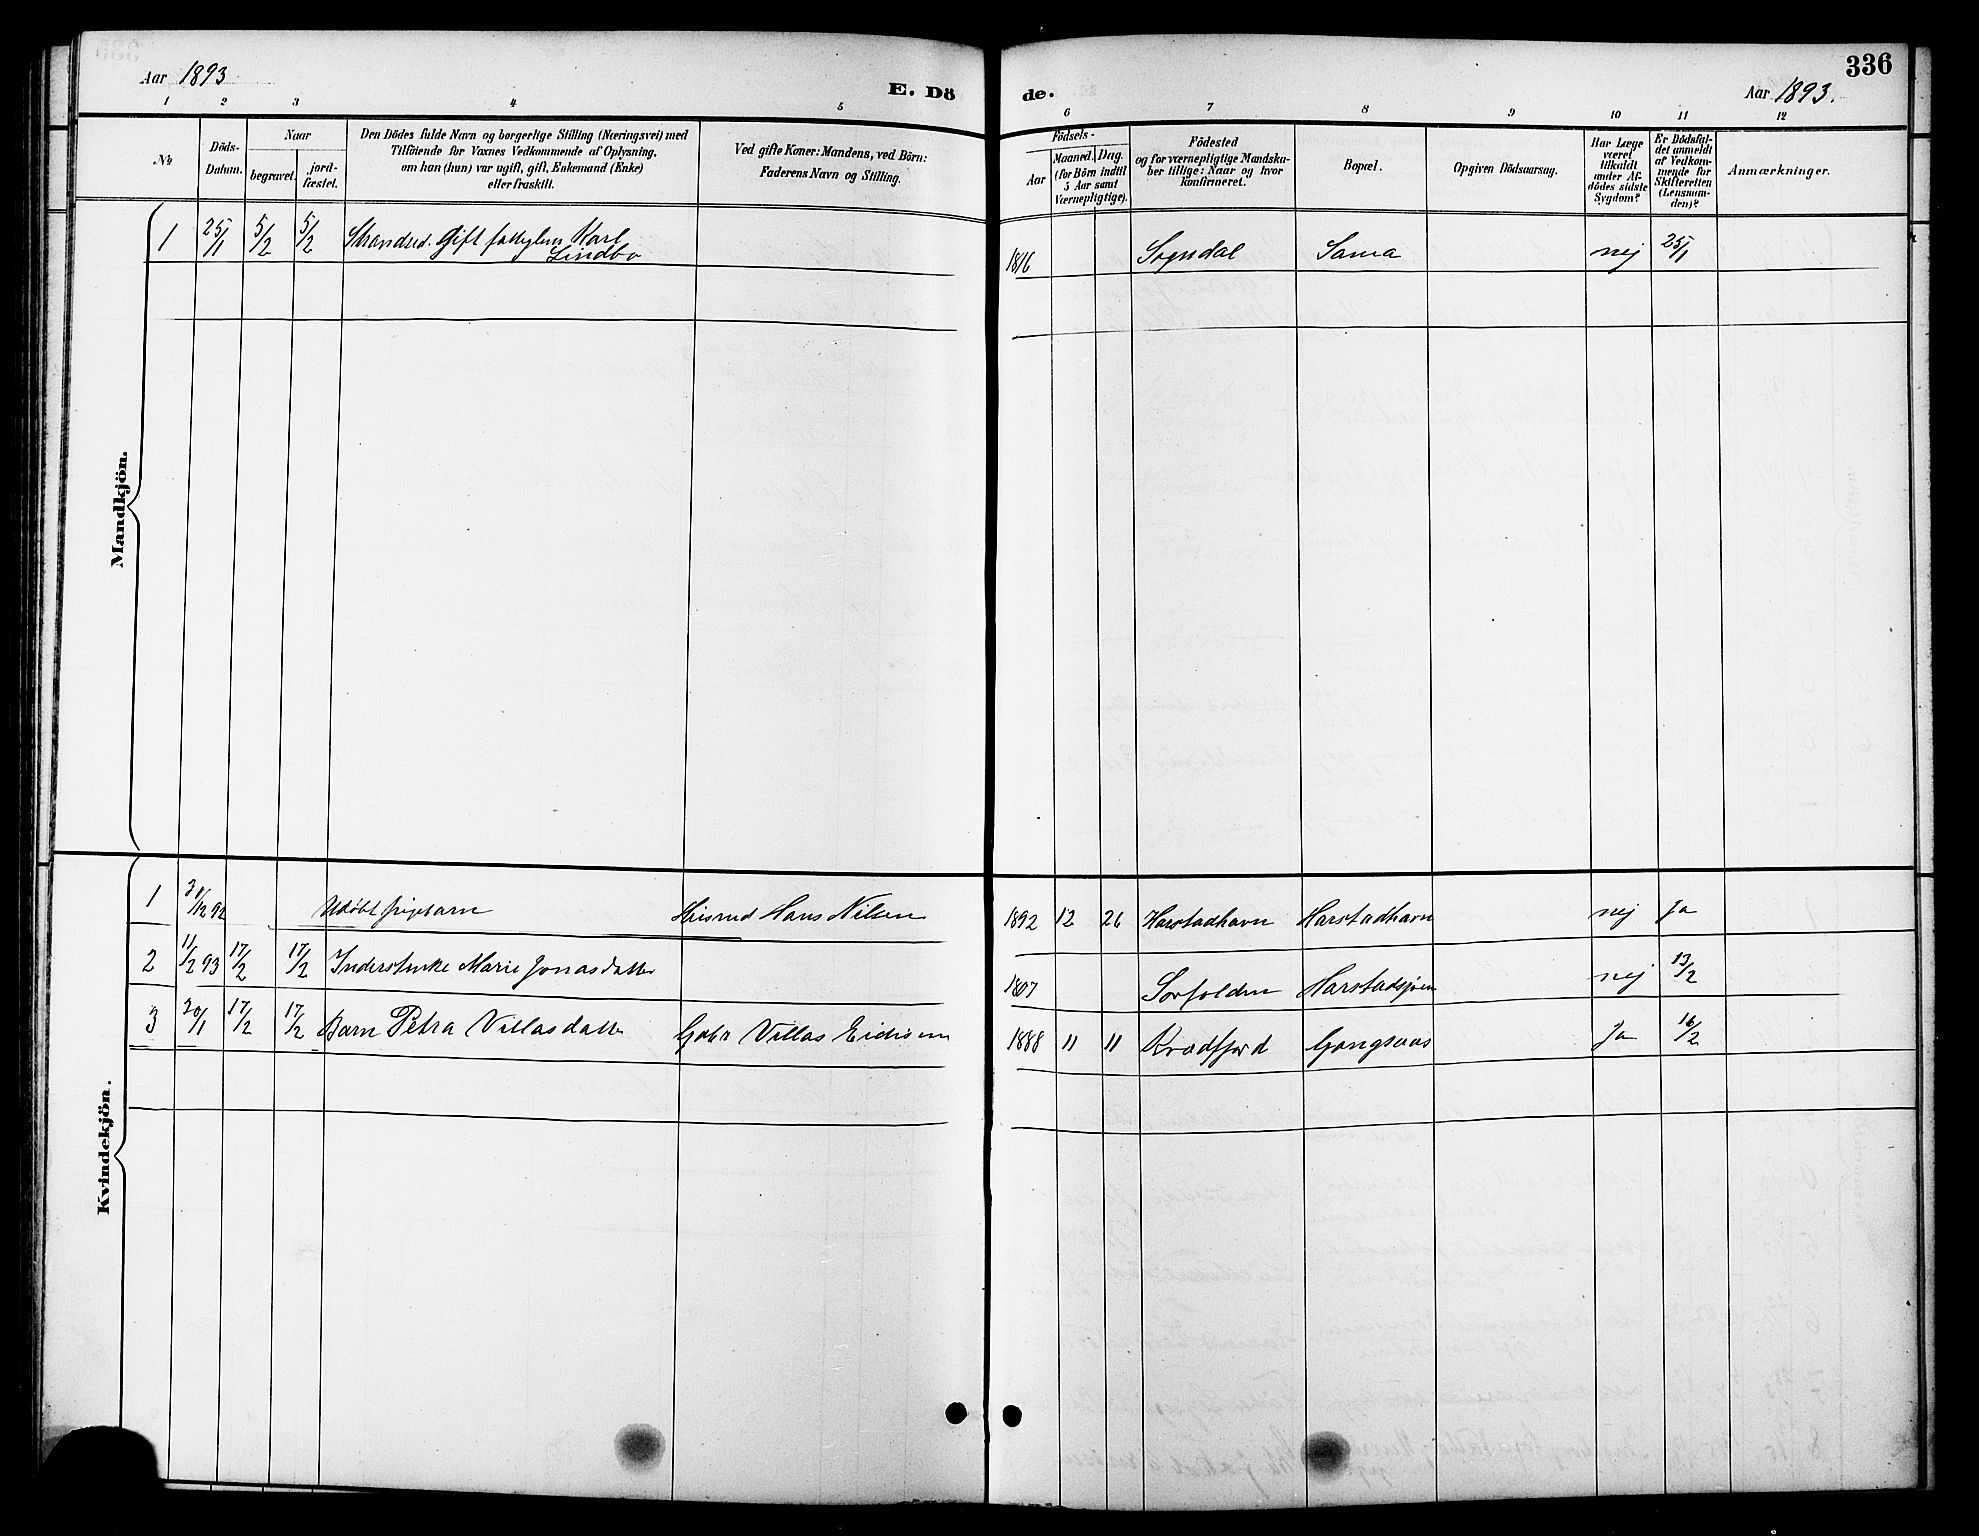 336
Aar 1893
E. Dö
de.
Aar 1893.
1 2 3 4 5
6 7 8 9 10 11 12
No
Döds-
Datum.
Naar
begravet.
jord-
fæstet.
Den Dödes fulde Navn og borgerlige Stilling (Næringsvei) med
Tilföiende for Voxnes Vedkommende af Oplysning.
om han (hun) var ugift, gift, Enkemand (Enke)
eller fraskilt.
Ved gifte Koner: Mandens, ved Börn:
Faderens Navn og Stilling.
Födsels-
Aar
Maaned.
Dag.
(for Börn indtil
5 Aar samt
Værnepligtige).
Födested
og for værnepligtige Mandska-
ber tillige: Naar og hvor
konfirmeret.
Bopæl.
Opgiven Dödsaarsag.
Har Læge
været
tilkaldt
under Af-
dödes sidste
Sygdom?
Er Dödsfal-
det anmeldt
af Vedkom-
mende for
Skifteretten
(Lensman-
den)?
Anmærkninger.
Mandkjön.
1 25/1 5/2 5/2 Gift Karl
Lindbo
1816 Sogndal Sama nej 25/1
Kvindekjön.
1 Udøbt pigebarn Hans Nilsen 1892 12 26 Harstadhavn Harstadhavn nej Ja
2 11/2 93 17/2 17/2 Inderstenke Marie Jonasdatter 1807 Sorfolden nej 13/2
3 17/2 17/2 Barn Petra Villasdatter Villas 1888 11 11 Kvædfjord Gangsaas Ja 16/2